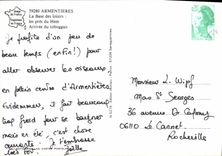 59280 ARMENTIERES
La Base des loisirs :
les prés du Hem
Arrivée du toboggan
Je profite d'un peu de
beau temps (enfin!) pour
aller observer les oiseaux
en plein centre d'Armentières!
Evidemment, il fait beaucoup
trop froid pour se baigner
mais en été, c'est chose
courante. Je t'embrasse
Joëlle
Monsieur L. Wipf
Mas St Georges
36 avenue St
06110 Le Cannet
Rocheville